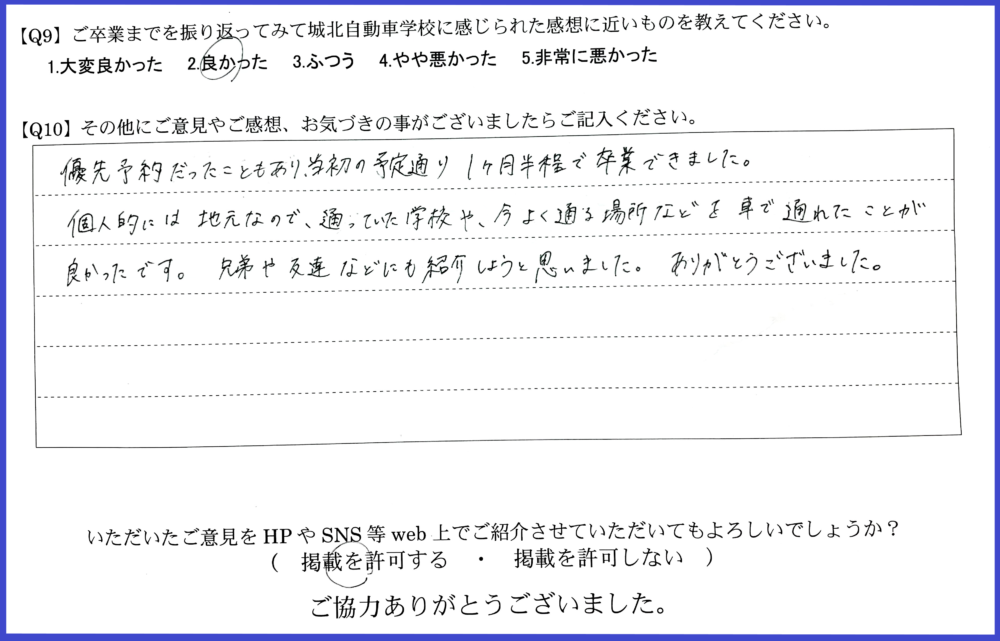 【Q9】ご卒業までを振り返ってみて城北自動車学校に感じられた感想に近いものを教えてください。
1.大変良かった 2.良かった 3.ふつう 4.やや悪かった 5.非常に悪かった
【Q10】その他にご意見やご感想、お気づきの事がございましたらご記入ください。
優先予約だったこともあり、当初の予定通り 1ヶ月半程で卒業できました。
個人的には 地元なので、通っていた学校や、今よく通る場所などを車で通れたことが
良かったです。 兄弟や友達などにも紹介しようと思いました。 ありがとうございました。
いただいたご意見をHPやSNS等web上でご紹介させていただいてもよろしいでしょうか？
( 掲載を許可する ・ 掲載を許可しない )
ご協力ありがとうございました。